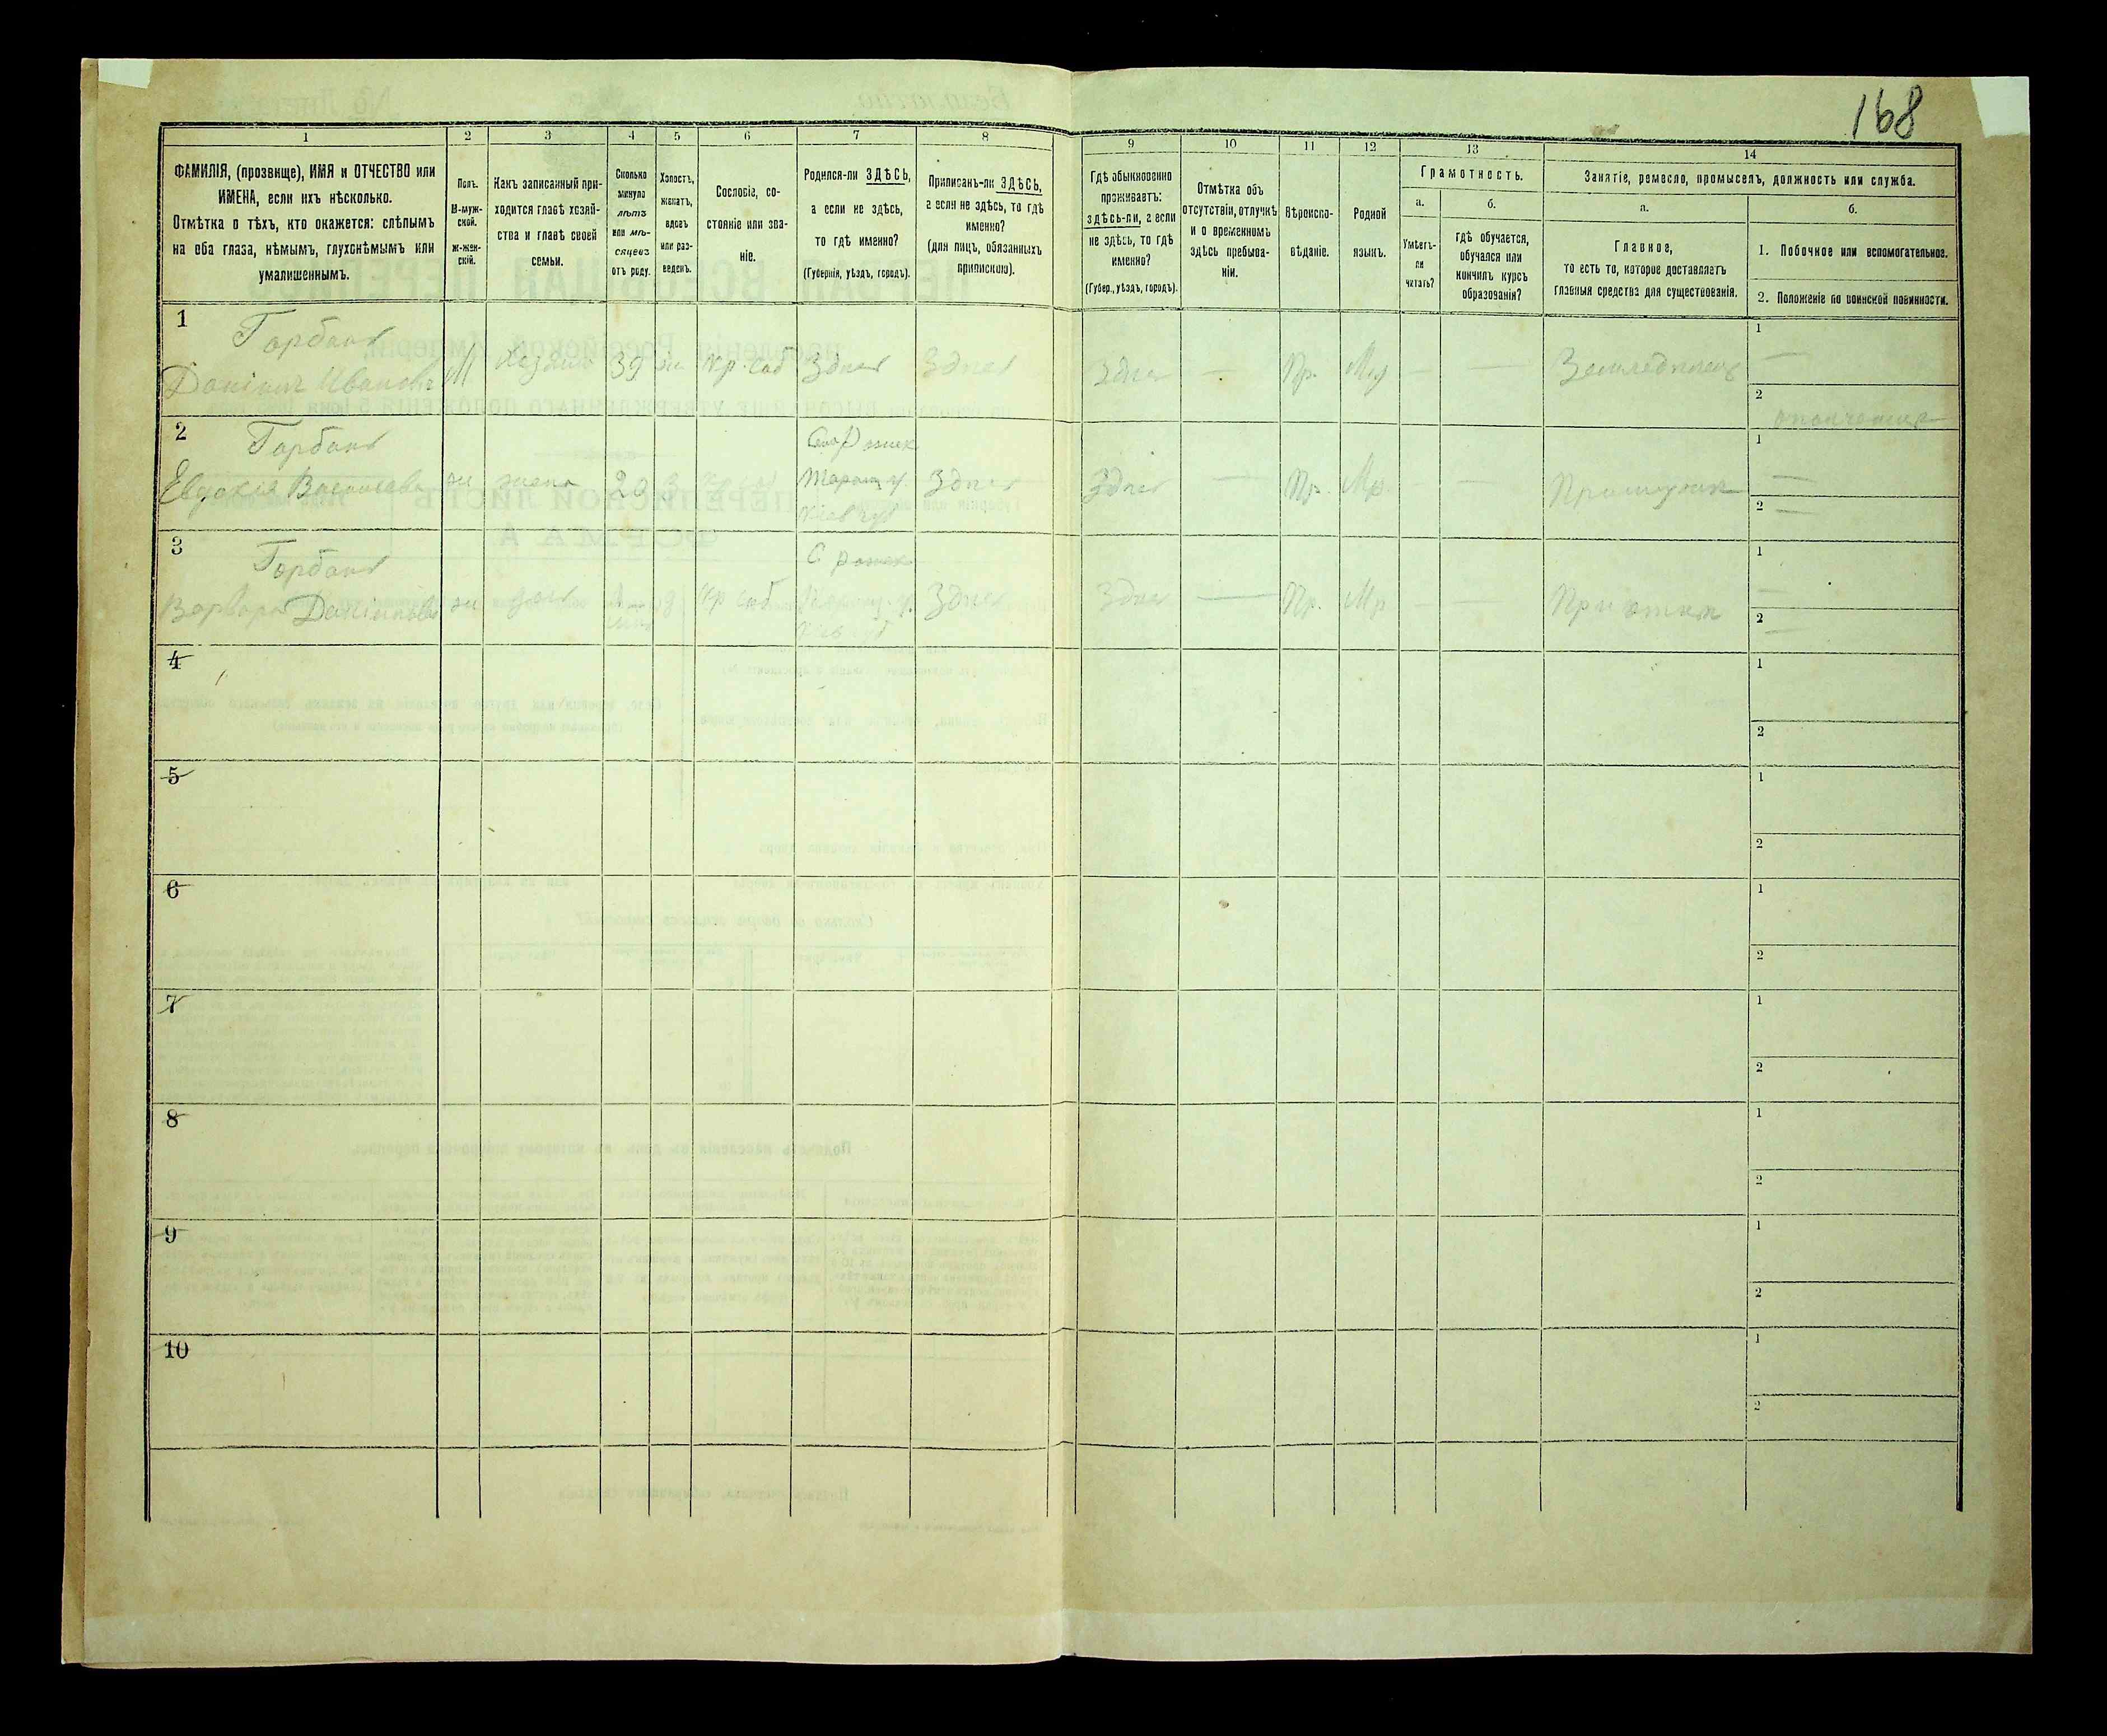 168
1
2
3
4
5
6
7
8
9
10
11
12
13
14
ФАМИЛІЯ, (прозвище), ИМЯ и ОТЧЕСТВО или
ИМЕНА, если ихъ нѣсколько.
Отмѣтка о тѣхъ, кто окажется: слѣпымъ
на оба глаза, нѣмымъ, глухонѣмымъ или
умалишеннымъ.
Полъ.
М-муж-
ской.
ж-жен-
скій.
Какъ записанный при-
ходится главѣ хозяй-
ства и главѣ своей
семьи.
Сколько
минуло
лѣтъ
или мѣ-
сяцевъ
отъ роду.
Холостъ,
женатъ,
вдовъ
или раз-
веденъ.
Сословіе, со-
стояніе или зва-
ніе.
Родился-ли ЗДѢСЬ,
а если не здѣсь,
то гдѣ именно?
(Губернія, уѣздъ, городъ).
Приписанъ-ли ЗДѢСЬ,
а если не здѣсь, то гдѣ
именно?
(для лицъ, обязанныхъ
припискою).
Гдѣ обыкновенно
проживаетъ:
здѣсь-ли, а если
не здѣсь, то гдѣ
именно?
(Губер., уѣздъ, городъ).
Отмѣтка объ
отсутствіи, отлучкѣ
и о временномъ
здѣсь пребыва-
ніи.
Вѣроиспо-
вѣданіе.
Родной
языкъ.
Грамотность.
а.
Умѣетъ-
ли
читать?
б.
гдѣ обучается,
обучался или
кончилъ курсъ
образованія?
Занятіе, ремесло, промыселъ, должность или служба.
а.
Главное,
то есть то, которое доставляетъ
главныя средства для существованія.
б.
1. Побочное или вспомогательное.
2. Положеніе по воинской повинности.
1
Горбань
Даніилъ Ивановъ М хозяинъ 39 ж Кр. соб Здесь Здесь Здесь — Пр. Мр — — Земледелецъ
1 —
2 ополченецъ
2
Горбань
Евдокія Васильева ж жена 20 Здесь Здесь — Пр. Мр. — —
Таращ у
Кіев губ
1 —
2 —
3
Горбань
Варвара Даніилова ж доч Кр соб Здесь Здесь — Пр. Мр — — При отце
1 —
2 —
4
1
2
5
1
2
6
1
2
7
1
2
8
1
2
9
1
2
10
1
2